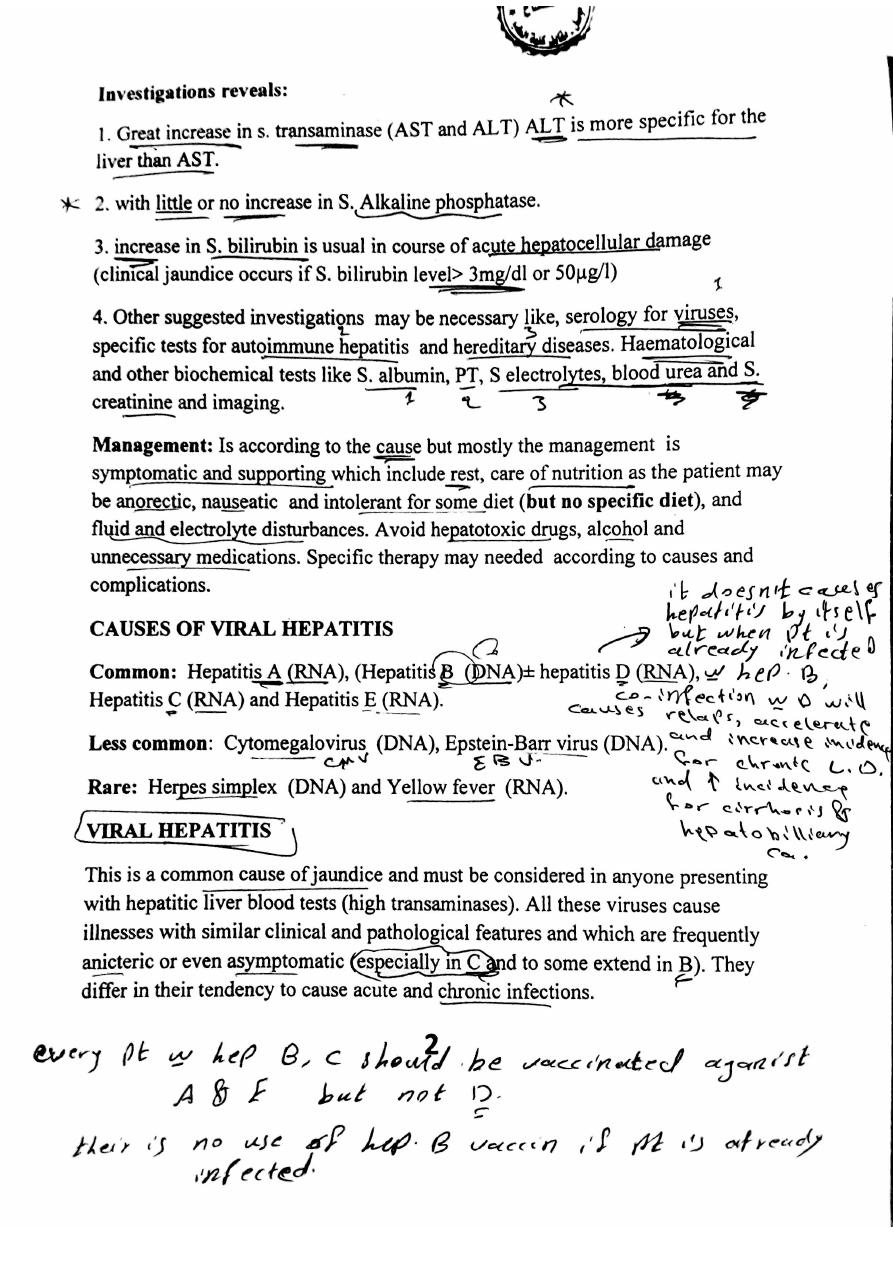 Investigations reveals:
*
1. Great increase in s. transaminase (AST and ALT) ALT is more specific for the
liver than AST.
* 2. with little or no increase in S. Alkaline phosphatase.
3. increase in S. bilirubin is usual in course of acute hepatocellular damage
(clinical jaundice occurs if S. bilirubin level> 3mg/dl or 50µg/l)
1
4. Other suggested investigations may be necessary like, serology for viruses,
2 3
specific tests for autoimmune hepatitis and hereditary diseases. Haematological
and other biochemical tests like S. albumin, PT, S electrolytes, blood urea and S.
1 2 3 4 5
creatinine and imaging.
Management: Is according to the cause but mostly the management is
symptomatic and supporting which include rest, care of nutrition as the patient may
be anorectic, nauseatic and intolerant for some diet (but no specific diet), and
fluid and electrolyte disturbances. Avoid hepatotoxic drugs, alcohol and
unnecessary medications. Specific therapy may needed according to causes and
complications.
CAUSES OF VIRAL HEPATITIS
Common: Hepatitis A (RNA), (Hepatitis B (DNA)± hepatitis D (RNA),
Hepatitis C (RNA) and Hepatitis E (RNA).
it doesn't causes
hepatitis by itself
but when pt is
already infected
w hep. B,
co-infection w D will
causes relaps, accelerate
and increase incidence
for chronic L.D.
and ↑ incidence
for cirrhosis &
hepatobilliary
Ca.
Less common: Cytomegalovirus (DNA), Epstein-Barr virus (DNA).
CMV EBV
Rare: Herpes simplex (DNA) and Yellow fever (RNA).
VIRAL HEPATITIS
This is a common cause of jaundice and must be considered in anyone presenting
with hepatitic liver blood tests (high transaminases). All these viruses cause
illnesses with similar clinical and pathological features and which are frequently
anicteric or even asymptomatic (especially in C and to some extend in B). They
differ in their tendency to cause acute and chronic infections.
2
every pt w hep B, C should be vaccinated aganist
A & E but not D.
their is no use of hep. B vaccin if pt is already
infected.